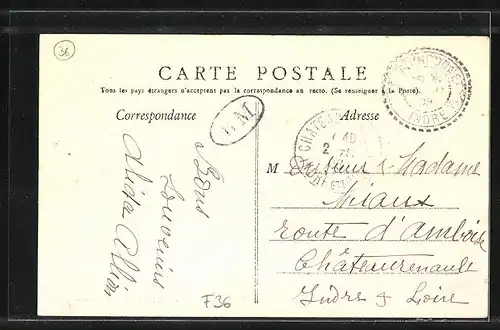 36
CARTE POSTALE
Tous les pays étrangers n'acceptent pas la correspondance au recto. (Se renseigner à la Poste).
Correspondance
Adresse
B.M
INDRE
CHATEAU
Bons
Souvenirs
Alida
M
& Madame
Miaux
route d'Amboise
Châteaurenault
Indre & Loire
F36